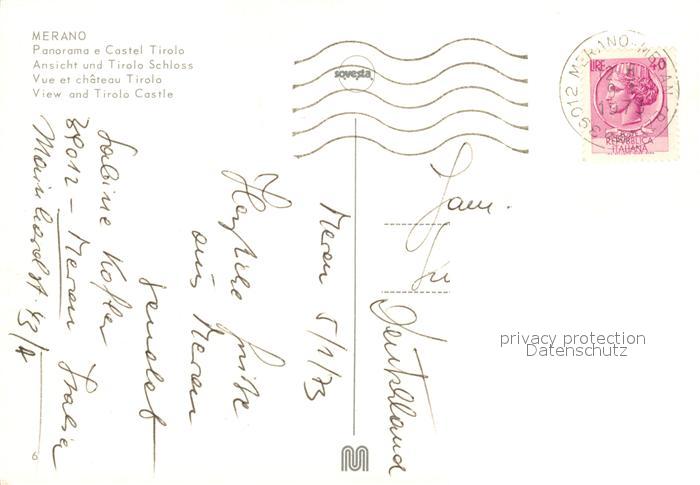 MERANO
Panorama e Castel Tirolo
Ansicht und Tirolo Schloss
Vue et château Tirolo
View and Tirolo Castle
sovesta
39012 MERANO-MERAN
LIRE 40
REPUBBLICA
ITALIANA
Fam.
Deutschland
privacy protection
Datenschutz
Meran 5/1/73
Herzliche Grüße
aus Meran
sendet
Sabine Kofler
39012 - Meran Italia
Mainhardst. 43/A
6